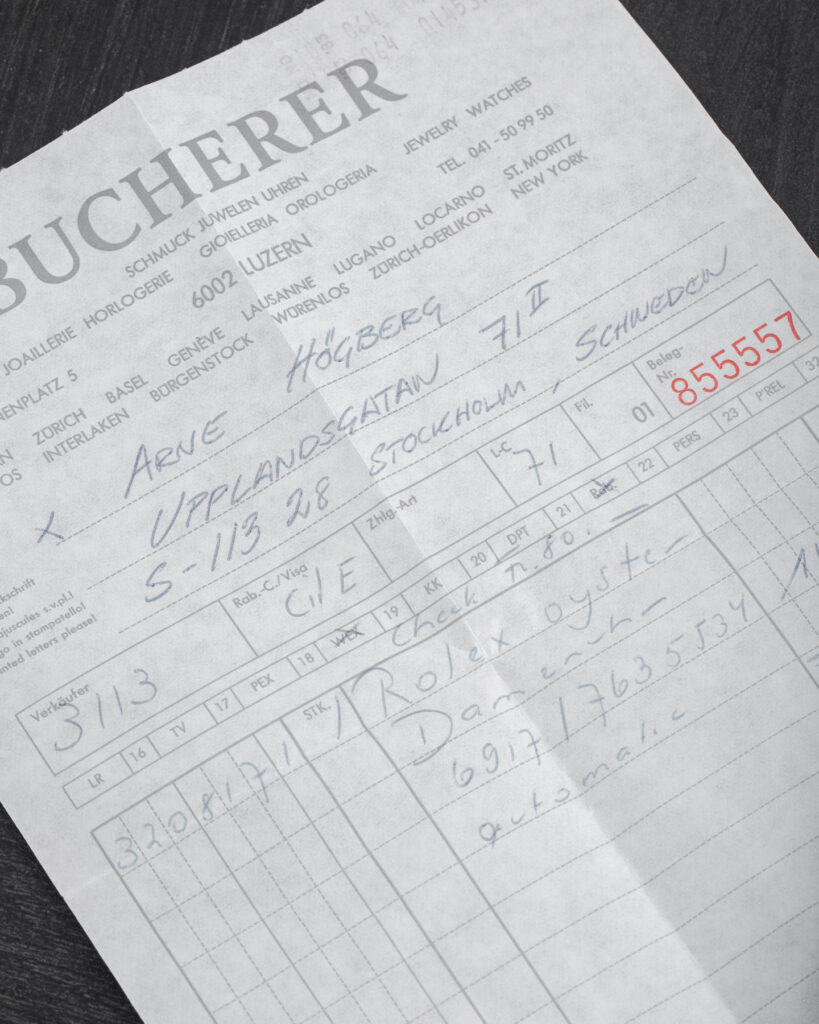 BUCHERER
SCHMUCK JUWELEN UHREN
JOAILLERIE HORLOGERIE GIOIELLERIA OROLOGERIA JEWELRY WATCHES
6002 LUZERN TEL. 041 - 50 99 50
ENPLATZ 5
ZÜRICH BASEL GENÈVE LAUSANNE LUGANO LOCARNO ST. MORITZ
OS INTERLAKEN BÜRGENSTOCK WÜRENLOS ZÜRICH-OERLIKON NEW YORK
X ARNE HÖGBERG
UPPLANDSGATAN 71 II
S-113 28 STOCKHOLM, SCHWEDEN
ckschrift
en!
ajuscules s.v.pl.!
go in stampatello!
nted letters please!
Verkäufer 3113 Rab.-C./Visa Zhlg-Art LC 71 Fil. 01 Beleg-Nr. 855557
LR 16 TV 17 PEX 18 WEX 19 KK 20 DPT 21 Bat. 22 PERS 23 P'REL 32
STK. Check n. 80. —
3208171 1 Rolex oyster
Damenuhr
6917 / 7635534
automatic